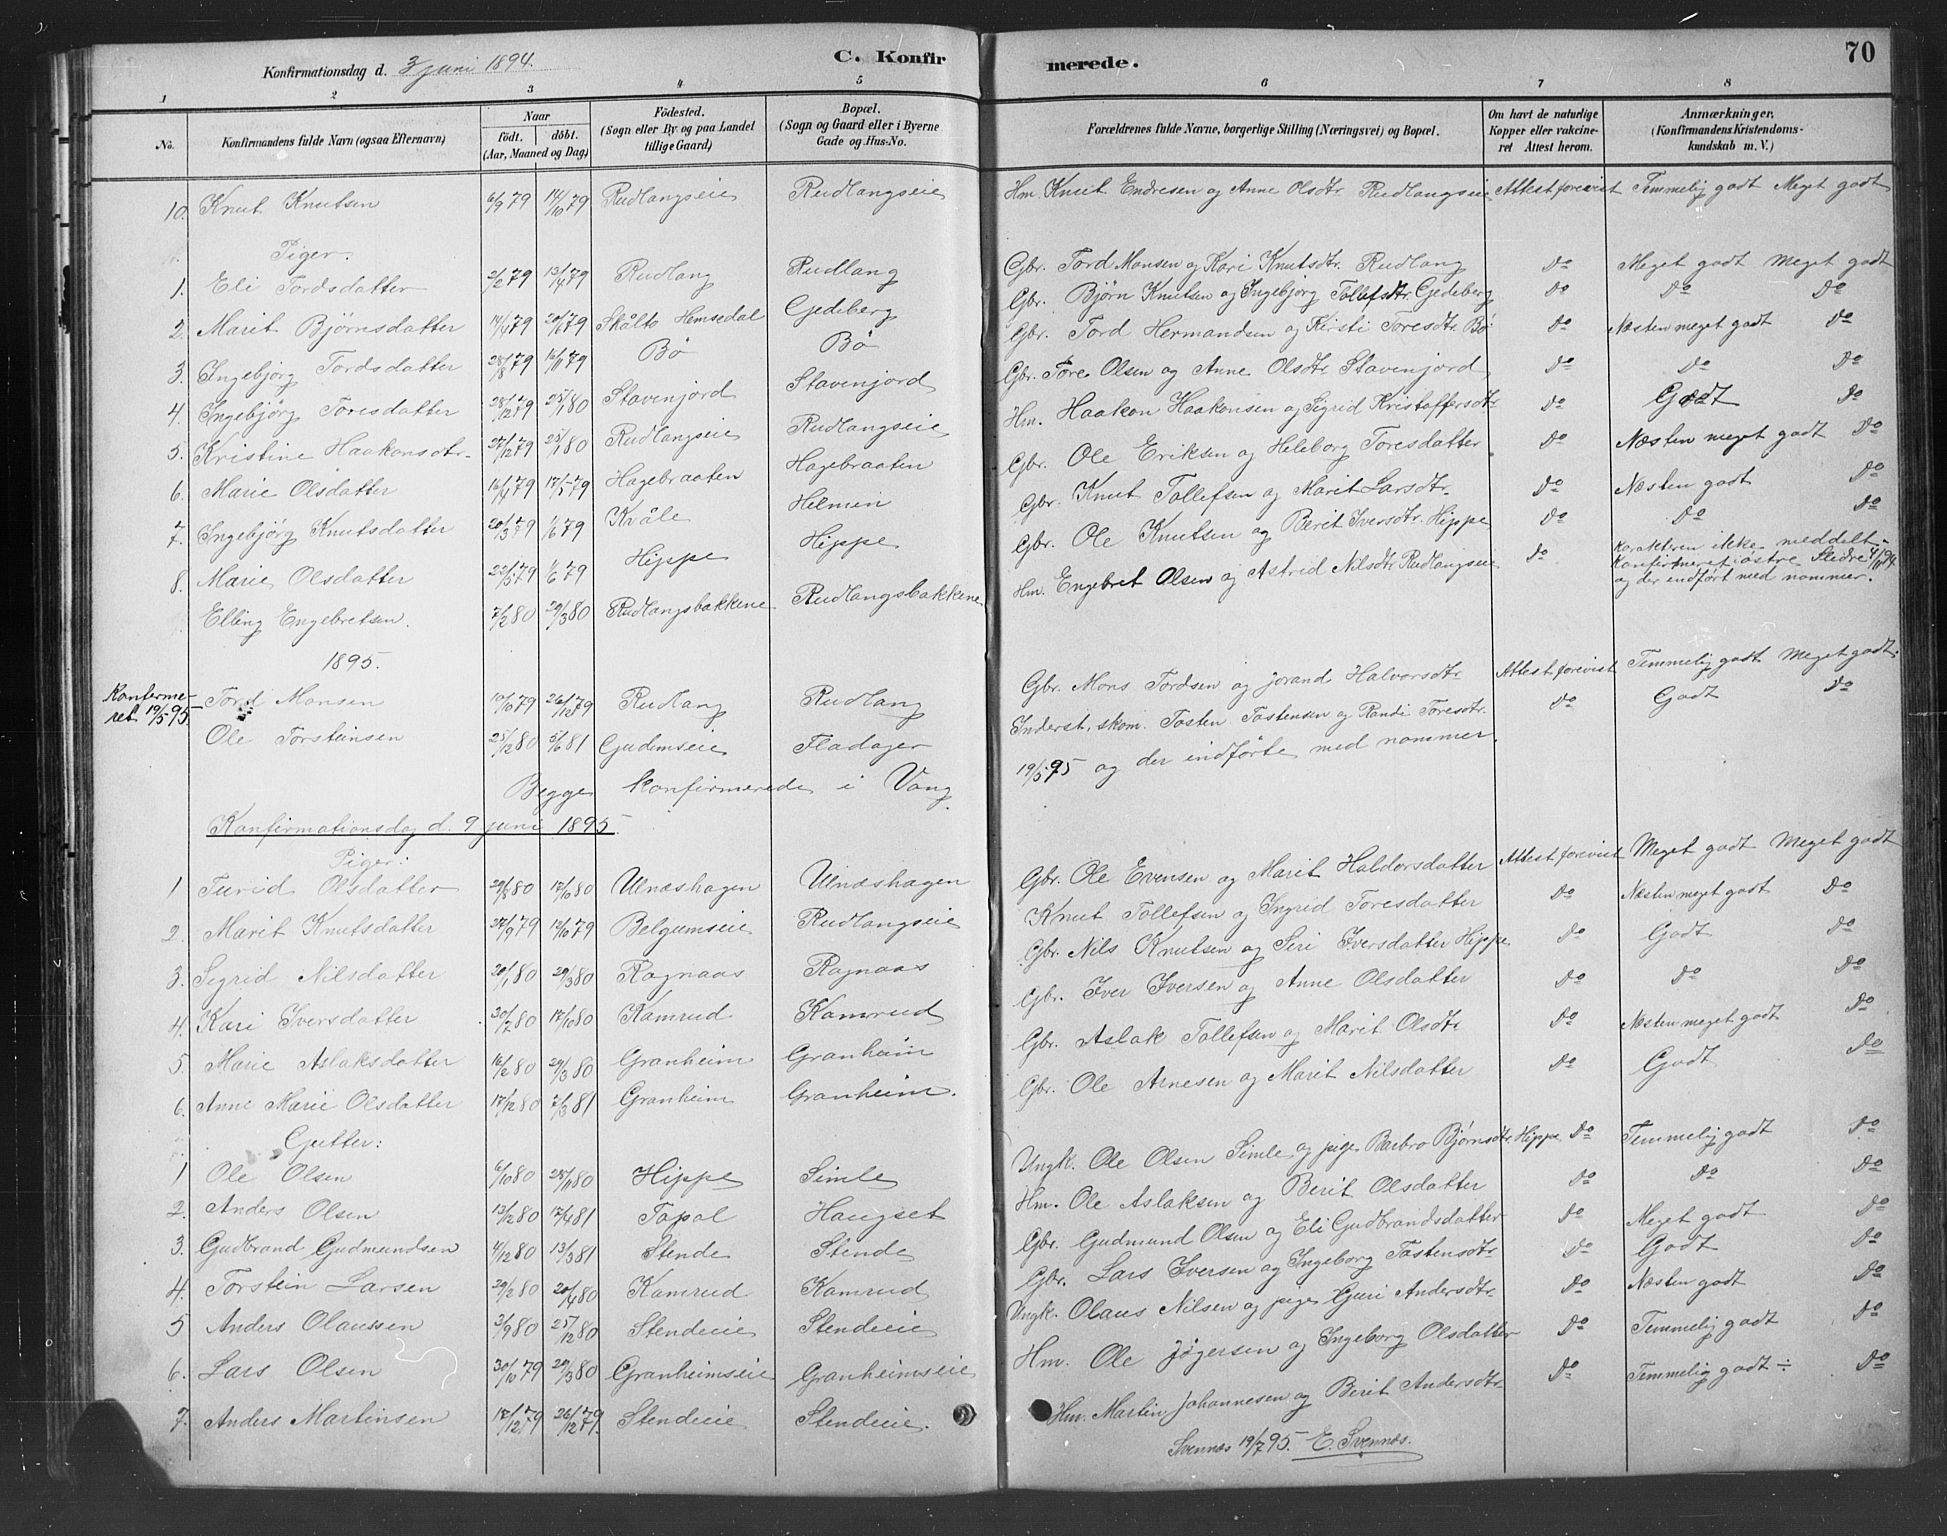 Konfirmationsdag d. 3 juni 1894. C. Konfir merede. 70
1 2 3 4 5 6 7 8
No. Konfirmandens fulde Navn (ogsaa Efternavn) Naar födt. döbt. (Aar, Maaned og Dag) Födested. (Sogn eller By og paa Landet tillige Gaard) Bopæl. (Sogn og Gaard eller i Byerne Gade og Hus-No. Forældrenes fulde Navne, borgerlige Stilling (Næringsvei) og Bopæl. Om havt de naturlige Kopper eller vakcineret Attest herom. Anmærkninger. (Konfirmandens Kristendomskundskab m. V.)
10. Knut Knutsen 6/9 79 14/10 79 Rudlangseie Rudlangseie Hm. Knut Endresen og Anne Olsdtr Rudlangseie Attest forevist Temmelig godt Meget godt
Piger.
1. Eli Tordsdatter 2/2 79 13/4 79 Rudlang Rudlang Gbr. Tord Monsen og Kari Knutsdtr. Rudlang do Meget godt Meget godt
2. Marit Bjørnsdatter 14/4 79 20/6 79 Skålto Hemsedal Gedeberg Gbr. Bjørn Knutsen og Ingebjorg Tollefsdtr. Gedeberg do do do
3. Ingebjörg Tordsdatter 28/8 79 16/11 79 Bö Bö Gbr. Tord Hermandsen og Kristi Toresdtr. Bö do Næsten meget godt do
4. Ingebjörg Toresdatter 28/12 79 25/1 80 Stavenjord Stavenjord Gbr. Tore Olsen og Anne Olsdtr Stavenjord do do do
5. Kristine Haakonsdtr. 27/12 79 25/1 80 Rudlangseie Rudlangseie Hm. Haakon Haakonsen og Sigrid Kristoffersdtr do Godt do
6. Marie Olsdatter 16/4 79 17/5 79 Hagebraaten Hagebraaten Gbr. Ole Eriksen og Heleborg Toresdatter do Næsten meget godt do
7. Ingebjörg Knutsdatter 20/3 79 1/6 79 Kvåle Helmen Gbr. Knut Tollefsen og Marit Larsdtr. do Næsten godt do
8. Marie Olsdatter 22/5 79 1/6 79 Hippe Hippe Gbr. Ole Knutsen og Berit Iversdtr. Hippe do do do
Elling Engebretsen. 7/2 80 29/3 80 Rudlangsbakkene Rudlangsbakkene Hm. Engebret Olsen og Astrid Nilsdtr Rudlangseie do Karakteren ikke meddelt.
Konfirmeret i östre Slidre 4/11 94
og der indført med nommer.
1895.
Konfirmeret 19/5 95 Tord Monsen 17/10 79 26/12 79 Rudlang Rudlang Gbr. Mons Tordsen og Jorand Halvorsdtr Attest forevist Temmelig godt Meget godt.
Ole Torstensen 25/12 80 5/6 81 Gudemseie Fladager Inderst, skom. Tosten Tostensen og Randi Toresdtr. do Godt do
Begge konfirmerede i Vang 19/5 95 og der indförte med nommer.
Konfirmationsdag d. 9 juni 1895.
Piger:
1 Turid Olsdatter 29/8 80 17/10 80 Ulnæshagen Ulnæshagen Gbr. Ole Evensen og Marit Haldorsdatter Attest forevist Meget godt Meget godt
2. Marit Knutsdatter 27/9 79 12/10 79 Belgumseie Rudlangseie Knut Tollefsen og Ingrid Toresdatter do Næsten meget godt do
3. Sigrid Nilsdatter 20/1 80 29/3 80 Rognaas Rognaas Gbr. Nils Knutsen og Siri Iversdatter Hippe do Godt do
4. Kari Iversdatter 30/7 80 17/10 80 Kamrud Kamrud Gbr. Iver Iversen og Anne Olsdatter do do do
5. Marie Aslaksdatter 16/2 80 29/3 80 Granheim Granheim Gbr. Aslak Tollefsen og Marit Olsdtr do Næsten meget godt do
6. Anne Marie Olsdatter 17/12 80 2/3 81 Granheim Granheim. Gbr. Ole Arnesen og Marit Nilsdatter do Godt do
Gutter:
1 Ole Olsen 6/10 80 28/11 80 Hippe Simle Ungk. Ole Olsen Simle og pige Barbro Bjørnsdtr. Hippe do Temmelig godt do
2. Anders Olsen 13/12 80 17/4 81 Tapal Haugset Hm. Ole Aslaksen og Berit Olsdatter do do do
3. Gudbrand Gudmundsen 4/12 80 13/3 81 Stende Stende Gbr. Gudmund Olsen og Eli Gudbrandsdatter do Meget godt do
4. Torstein Larsen 29/2 80 20/4 80 Kamrud Kamrud Gbr. Lars Iversen og Ingeborg Tostensdtr do Godt do
5 Anders Olaussen 3/9 80 25/12 80 Stendeeie Stendeeie Ungk. Olaus Nilsen og pige Guri Andersdtr. do Næsten godt do
6. Lars Olsen 30/10 79 29/3 80 Granheimseie Granheimseie Hm. Ole Jögersen og Ingeborg Olsdatter do Temmelig godt do
7. Anders Martinsen 17/12 79 26/12 79. Stendeeie Stendeeie. Hm. Martin Johannesen og Berit Andersdtr. do Temmelig godt ÷ do
Svennæs 19/7 95. E. Svennæs.